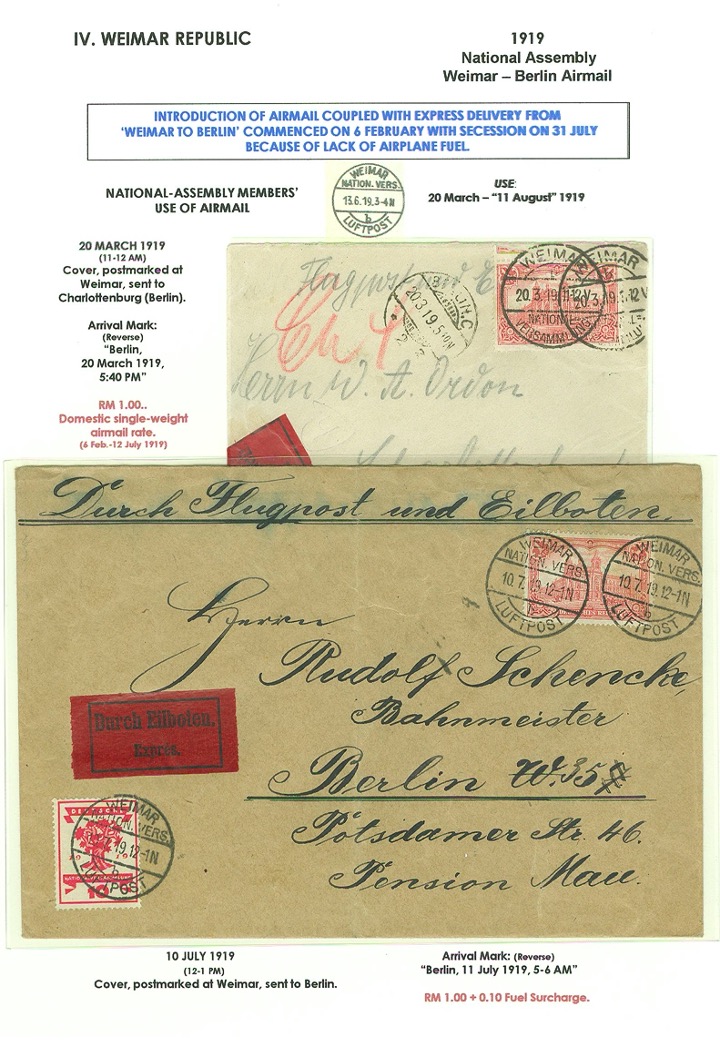 IV. WEIMAR REPUBLIC
1919
National Assembly
Weimar – Berlin Airmail
INTRODUCTION OF AIRMAIL COUPLED WITH EXPRESS DELIVERY FROM
‘WEIMAR TO BERLIN’ COMMENCED ON 6 FEBRUARY WITH SECESSION ON 31 JULY
BECAUSE OF LACK OF AIRPLANE FUEL.
NATIONAL-ASSEMBLY MEMBERS’
USE OF AIRMAIL
WEIMAR
NATION. VERS.
13.6.19.3-4N
b
LUFTPOST
USE:
20 March – “11 August” 1919
20 MARCH 1919
(11-12 AM)
Cover, postmarked at
Weimar, sent to
Charlottenburg (Berlin).
Arrival Mark:
(Reverse)
“Berlin,
20 March 1919,
5:40 PM”
RM 1.00..
Domestic single-weight
airmail rate.
(6 Feb.-12 July 1919)
Flugpost und E
Herrn W. A. Ordon
WEIMAR
20.3.19.11-12V
NATION
WEIMAR
Durch Flugpost und Eilboten.
WEIMAR
NATION. VERS.
10.7.19.12-1N
LUFTPOST
WEIMAR
NATION. VERS.
10.7.19.12-1N
b
LUFTPOST
Herrn
Rudolf Schencke,
Bahnmeister
Berlin W. 35
Potsdamer Str. 46.
Pension Mau.
Durch Eilboten.
Exprès.
DEUTSCHE
WEIMAR
NATION. VERS.
19.12-1N
b
LUFTPOST
10 JULY 1919
(12-1 PM)
Cover, postmarked at Weimar, sent to Berlin.
Arrival Mark: (Reverse)
“Berlin, 11 July 1919, 5-6 AM”
RM 1.00 + 0.10 Fuel Surcharge.